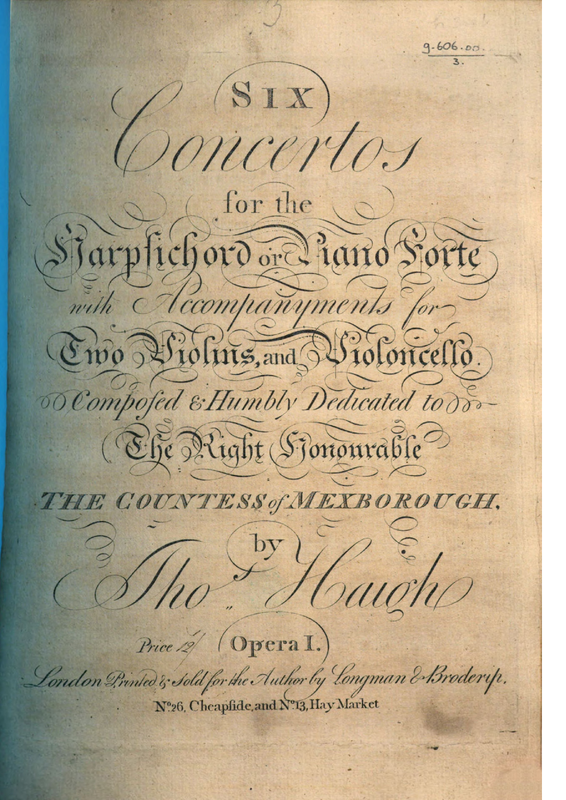 3
g.606.DD.
3.
SIX
Concertos
for the
Harpſichord or Piano Forte
with Accompanyments for
Two Violins, and Violoncello.
Compoſed & Humbly Dedicated to
The Right Honourable
THE COUNTESS of MEXBOROUGH.
by
Thos Haigh
Price 12/ Opera I.
London Printed & Sold for the Author by Longman & Broderip.
No. 26, Cheapſide, and No. 13, Hay Market